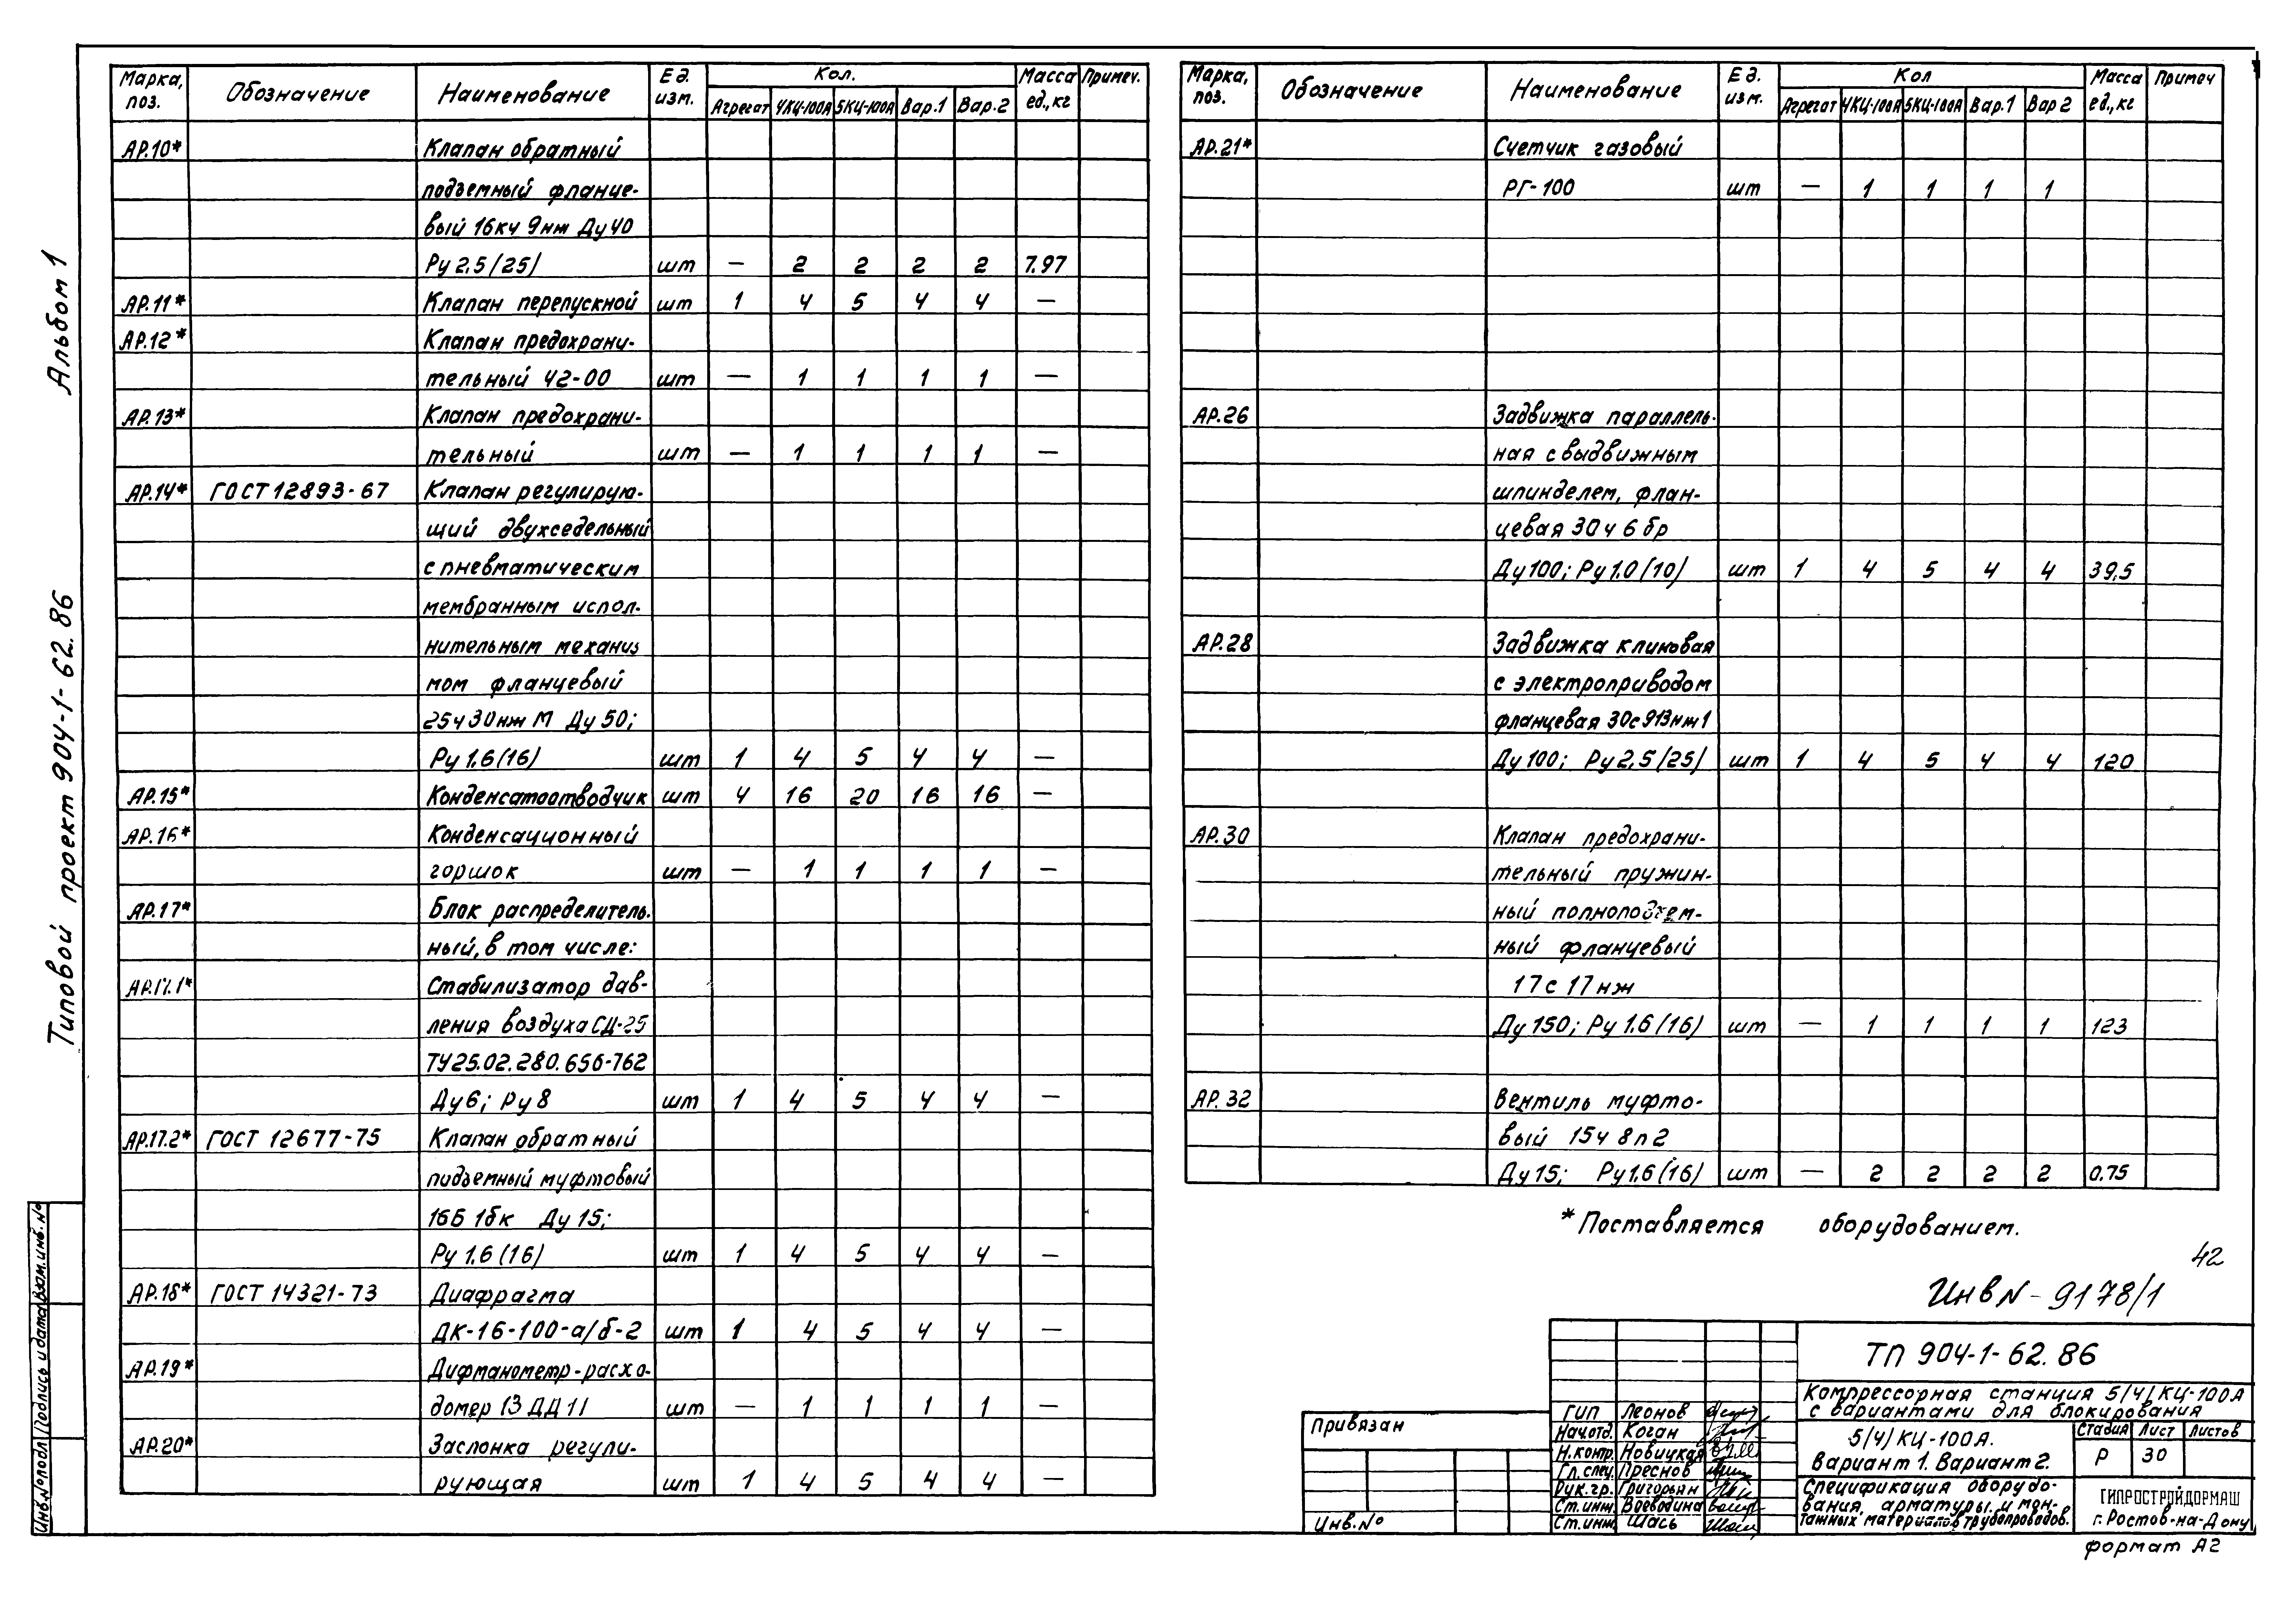 Альбом 1
Типовой проект 904-1-62.86
Марка, поз. Обозначение Наименование Ед. изм. Кол. Масса ед., кг Примеч.
Агрегат 4КЦ-100А 5КЦ-100А Вар.1 Вар.2
АР.10* Клапан обратный
подъемный фланце-
вый 16кч 9нж Ду 40
Ру 2,5/25/ шт — 2 2 2 2 7.97
АР.11* Клапан перепускной шт 1 4 5 4 4 —
АР.12* Клапан предохрани-
тельный 42-00 шт — 1 1 1 1 —
АР.13* Клапан предохрани-
тельный шт — 1 1 1 1 —
АР.14* ГОСТ 12893-67 Клапан регулирую-
щий двухседельный
с пневматическим
мембранным испол-
нительным механиз
мом фланцевый
25ч 30нж М Ду 50;
Ру 1,6(16) шт 1 4 5 4 4 —
АР.15* Конденсатоотводчик шт 4 16 20 16 16 —
АР.16* Конденсационный
горшок шт — 1 1 1 1 —
АР.17* Блок распределитель-
ный, в том числе:
АР.17.1* Стабилизатор дав-
ления воздуха СД-25
ТУ25.02.280.656-762
Ду6; Ру 8 шт 1 4 5 4 4 —
АР.17.2* ГОСТ 12677-75 Клапан обратный
подъемный муфтовый
16Б 1бк Ду 15;
Ру 1.6 (16) шт 1 4 5 4 4 —
АР.18* ГОСТ 14321-73 Диафрагма
ДК-16-100-а/б-2 шт 1 4 5 4 4 —
АР.19* Дифманометр-расхо-
домер 13 ДД 11 шт — 1 1 1 1 —
АР.20* Заслонка регули-
рующая шт 1 4 5 4 4 —
Марка, поз. Обозначение Наименование Ед. изм. Кол Масса ед., кг Примеч
Агрегат 4КЦ-100А 5КЦ-100А Вар.1 Вар 2
АР.21* Счетчик газовый
РГ-100 шт — 1 1 1 1
АР.26 Задвижка параллель-
ная с выдвижным
шпинделем, флан-
цевая 30ч 6 бр
Ду 100; Ру 1.0 (10) шт 1 4 5 4 4 39,5
АР.28 Задвижка клиновая
с электроприводом
фланцевая 30с 913нж1
Ду 100; Ру 2,5 /25/ шт 1 4 5 4 4 120
АР.30 Клапан предохрани-
тельный пружин-
ный полноподъем-
ный фланцевый
17с 17нж
Ду 150; Ру 1.6 (16) шт — 1 1 1 1 123
АР.32 Вентиль муфто-
вый 15ч 8п2
Ду 15; Ру 1.6 (16) шт — 2 2 2 2 0.75
*Поставляется оборудованием.
42
Инв N - 9178/1
ТП 904-1-62.86
Компрессорная станция 5/4/КЦ-100А
с вариантами для блокирования
ГИП Леонов
Нач.отд. Коган
Н.контр. Новицкая
Гл.спец. Преснов
Рук.гр. Григорьян
Ст.инж. Воеводина
Ст.инж. Шась
5/4/ КЦ-100А.
Вариант 1. Вариант 2.
Стадия Лист Листов
Р 30
Спецификация оборудо-
вания, арматуры и мон-
тажных материалов трубопроводов.
ГИПРОСТРОЙДОРМАШ
г. Ростов-на-Дону
Привязан
Инв.№
Инв.№ подл Подпись и дата Взам.инв.№
формат А2